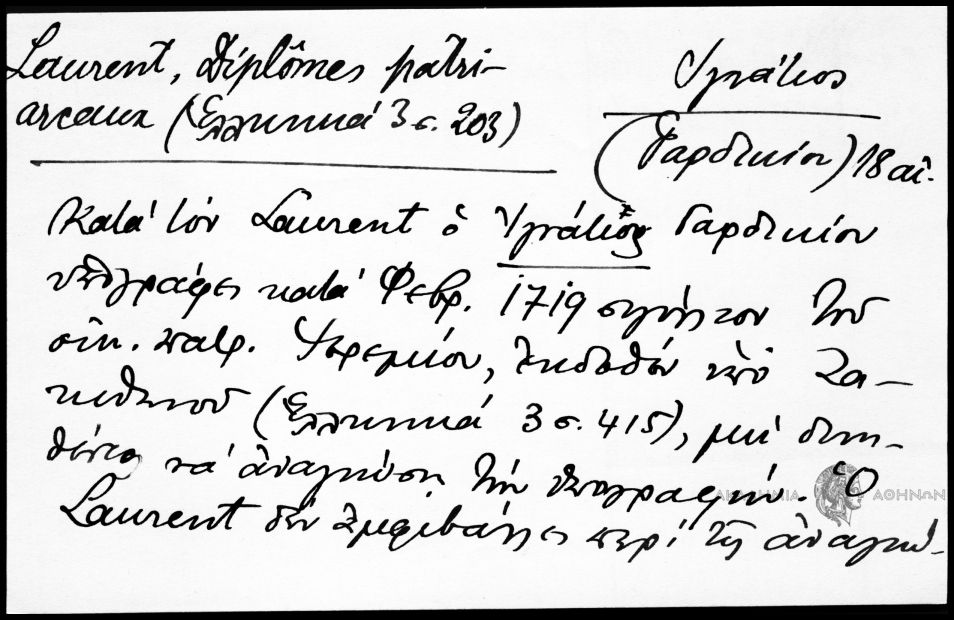 Laurent, Diplômes patri-
arcaux (Ἑλληνικά 3 σ. 203)
Ἰγνάτιος
(Γαρδικίου) 18 αἰ.
Κατά τόν Laurent ὁ Ἰγνάτιος Γαρδικίου
ὑπογράφει κατά Φεβρ. 1719 σιγίλλιον τοῦ
οἰκ. πατρ. Ἱερεμίου, ἐκδοθέν ὑπό Ζα-
κυθηνοῦ (Ἑλληνικά 3 σ. 415), μή δυνη-
θέντος νά ἀναγνώση τήν ὑπογραφήν. Ὁ
Laurent δέν ἀμφιβάλλει περί τῆς ἀναγνώ-
ΑΚΑΔΗΜΙΑ ΑΘΗΝΩΝ